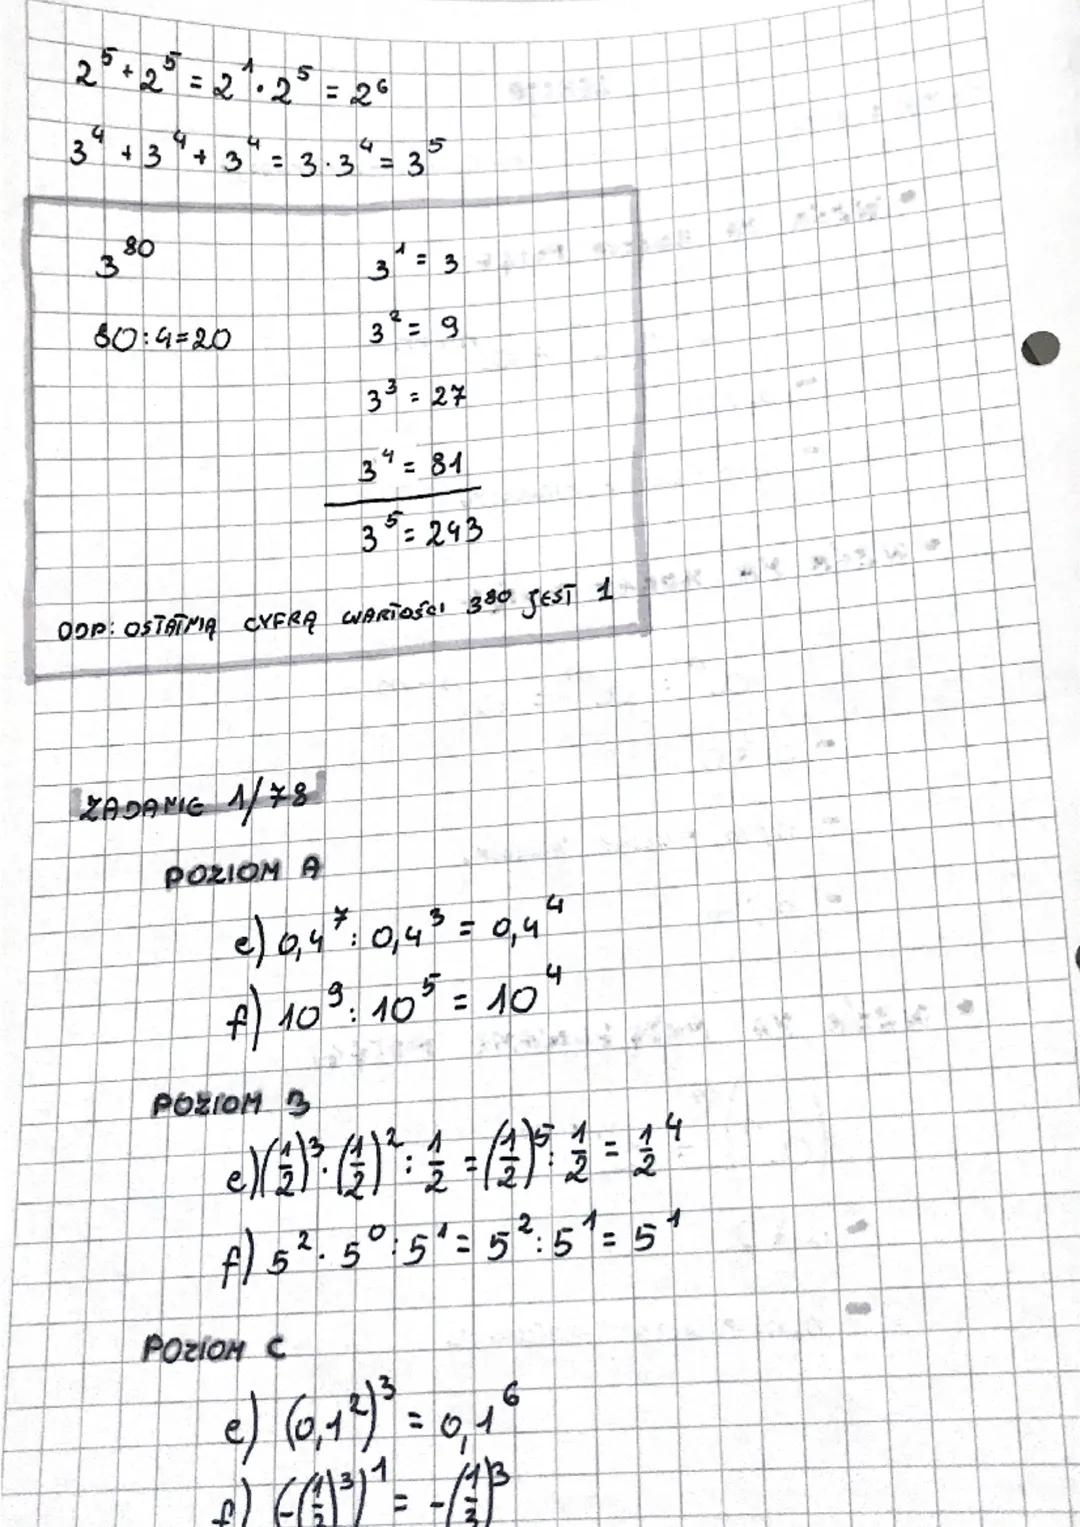 2⁵ + 2⁵ = 2¹ · 2⁵ = 2⁶
3⁴ + 3⁴ + 3⁴ = 3 · 3⁴ = 3⁵
3⁸⁰ 3¹ = 3
80 : 4 = 20 3² = 9
3³ = 27
3⁴ = 81
3⁵ = 243
ODP: OSTATNIĄ CYFRĄ WARTOŚCI 3⁸⁰ JEST 1
ZADANIE 1/78
POZIOM A
e) 0,4⁷ : 0,4³ = 0,4⁴
f) 10⁹ : 10⁵ = 10⁴
POZIOM B
e) (1/2)³ · (1/2)² : 1/2 = (1/2)⁵ : 1/2 = 1/2⁴
f) 5² · 5⁰ : 5¹ = 5² : 5¹ = 5¹
POZIOM C
e) (0,1²)³ = 0,1⁶
f) (-(1/3)³)¹ = -(1/3)³